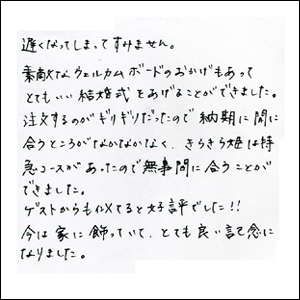 遅くなってしまってすみません。
素敵なウェルカムボードのおかげもあって
とてもいい結婚式をあげることができました。
注文するのがギリギリだったので納期に間に
合うところがなかなかなく、きらきら姫は特
急コースがあったので無事間に合うことが
できました。
ゲストからも似てると好評でした!!
今は家に飾っていて、とても良い記念に
なりました。